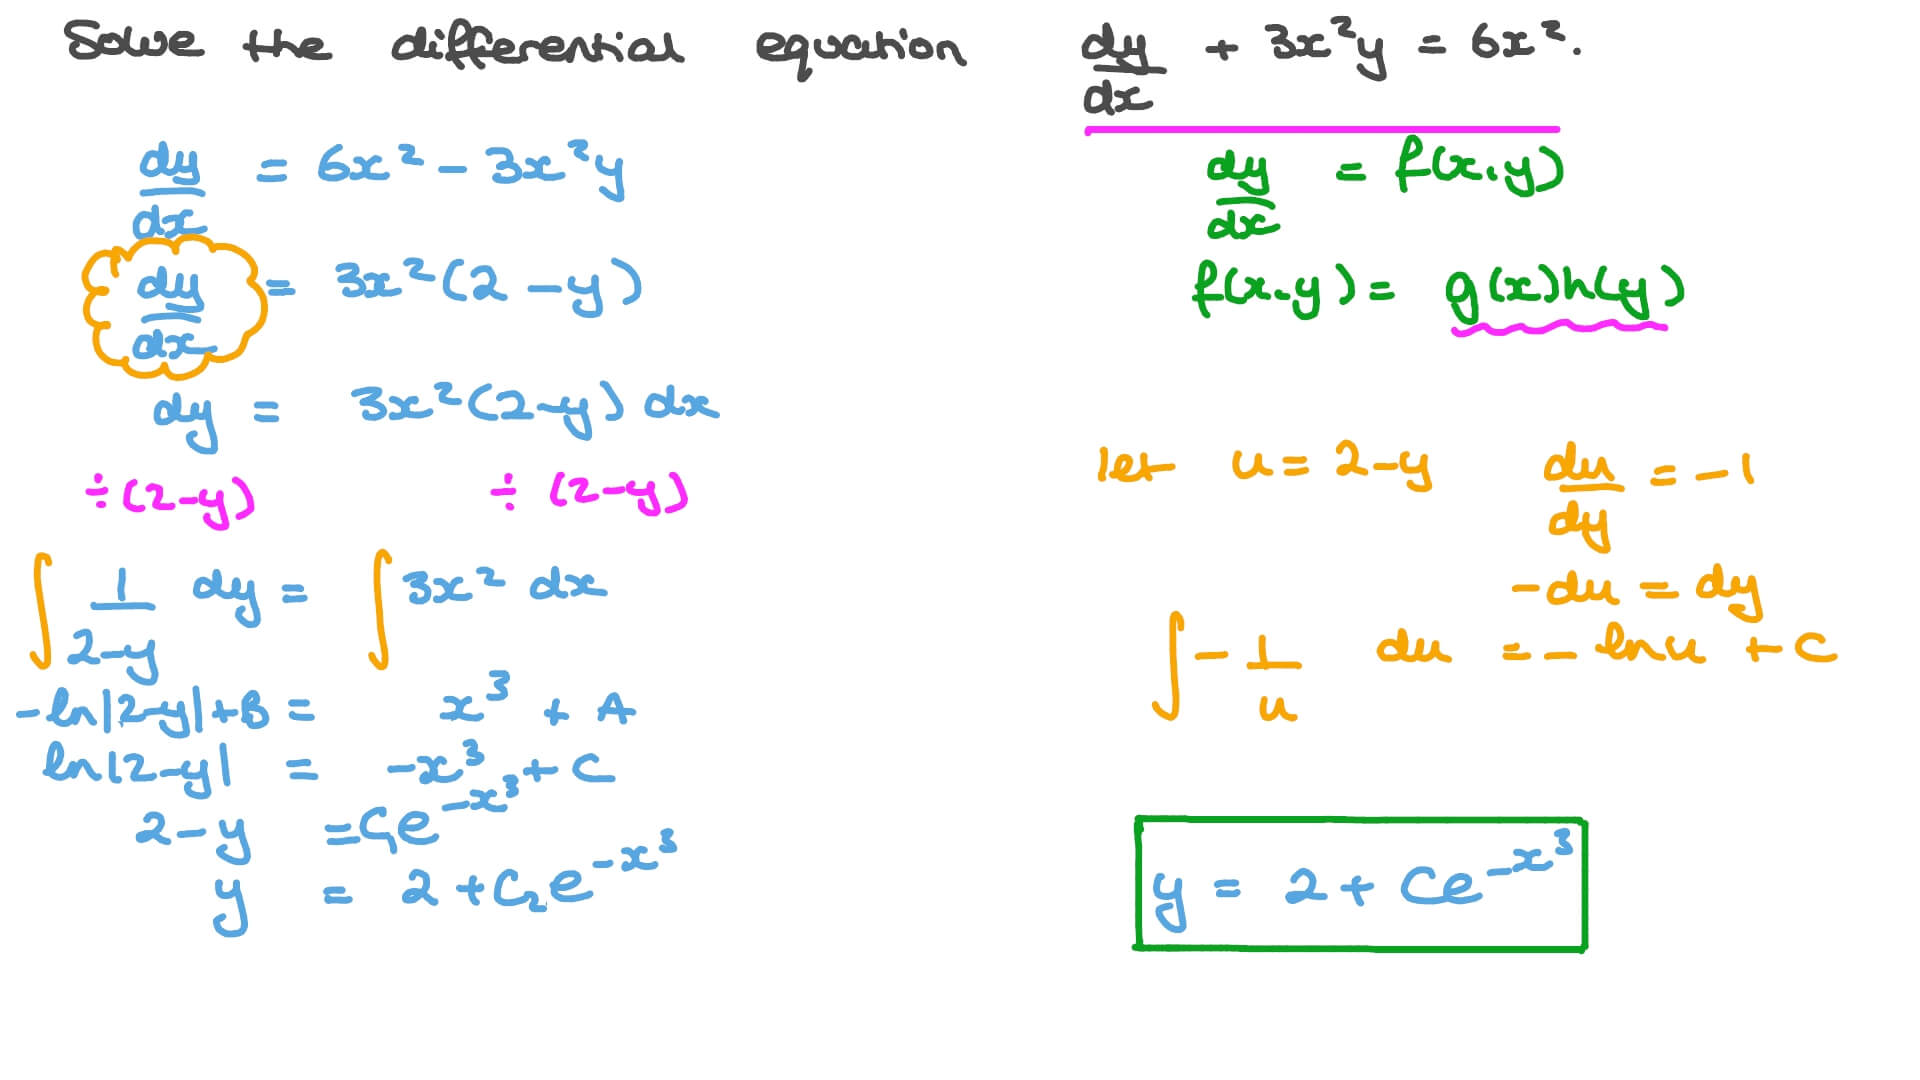 Solve the differential equation dy/dx + 3x²y = 6x².
dy/dx = 6x² - 3x²y
dy/dx = 3x²(2-y)
dy = 3x²(2-y) dx
÷(2-y) ÷(2-y)
∫ 1/(2-y) dy = ∫ 3x² dx
-ln|2-y|+B = x³ + A
ln|2-y| = -x³ + C
2-y = C₁e^(-x³)
y = 2 + C₂e^(-x³)
dy/dx = f(x,y)
f(x,y) = g(x)h(y)
let u = 2-y du/dy = -1
-du = dy
∫ - 1/u du = - ln u + C
y = 2 + Ce^(-x³)